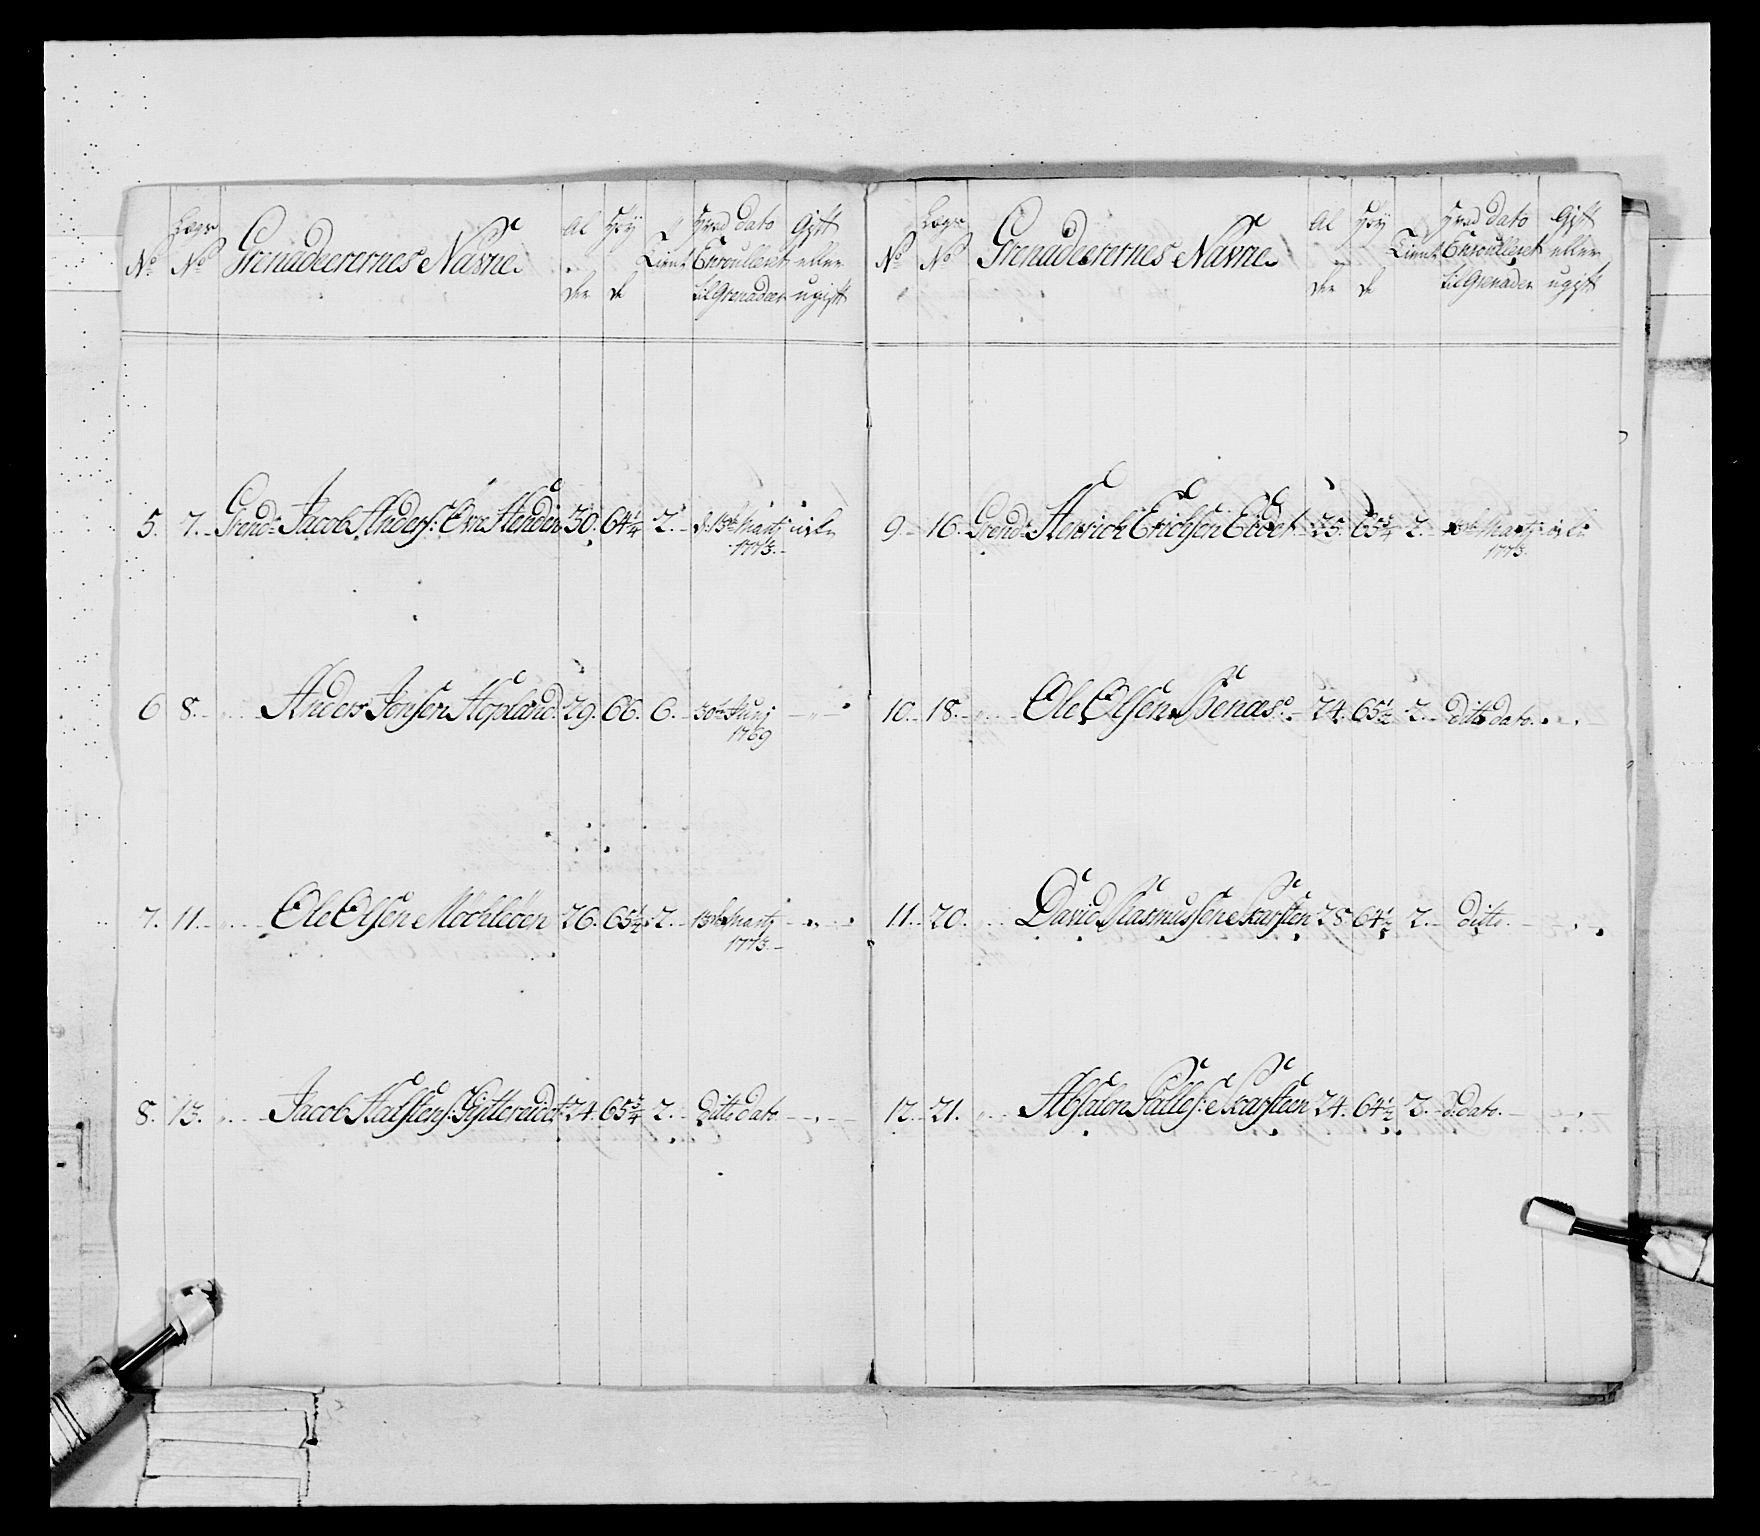 No Lægs No Grenadeerernes Navne Al der Høy de Tient Hvad dato Enroulleret til Grenadeer Gift eller ugift
5. 7. Grendr Jacob Anders: Øvre Henden 30. 64 1/4 2. d: 13de Martj 1773.
6 8. Anders Jonsen Hopland. 29. 66. 6. 30te Junj 1769
7. 11. Ole Olsen Møchleøen 26. 65 1/2 2. 13de Martj 1773.
8. 13. Jacob Halstens: 24. 65 3/4 2. ditto dato
No Lægs No Grenadeerernes Navne Al der Høy de Tient Hvad dato Enroulleret til Grenader Gift eller ugift
9. 16. Grendr Henrich Erichsen Eidet 25. 65 3/4 2. 13de Martj 1773.
10. 18. Ole Olsen 24. 65 1/2 2. ditto dato.
11. 20. David Rasmussen Skarsten 28. 64 1/2 2. ditto.
12. 21. Absalon Palles: Skarsteen 24. 64 1/2 2. d: dato.